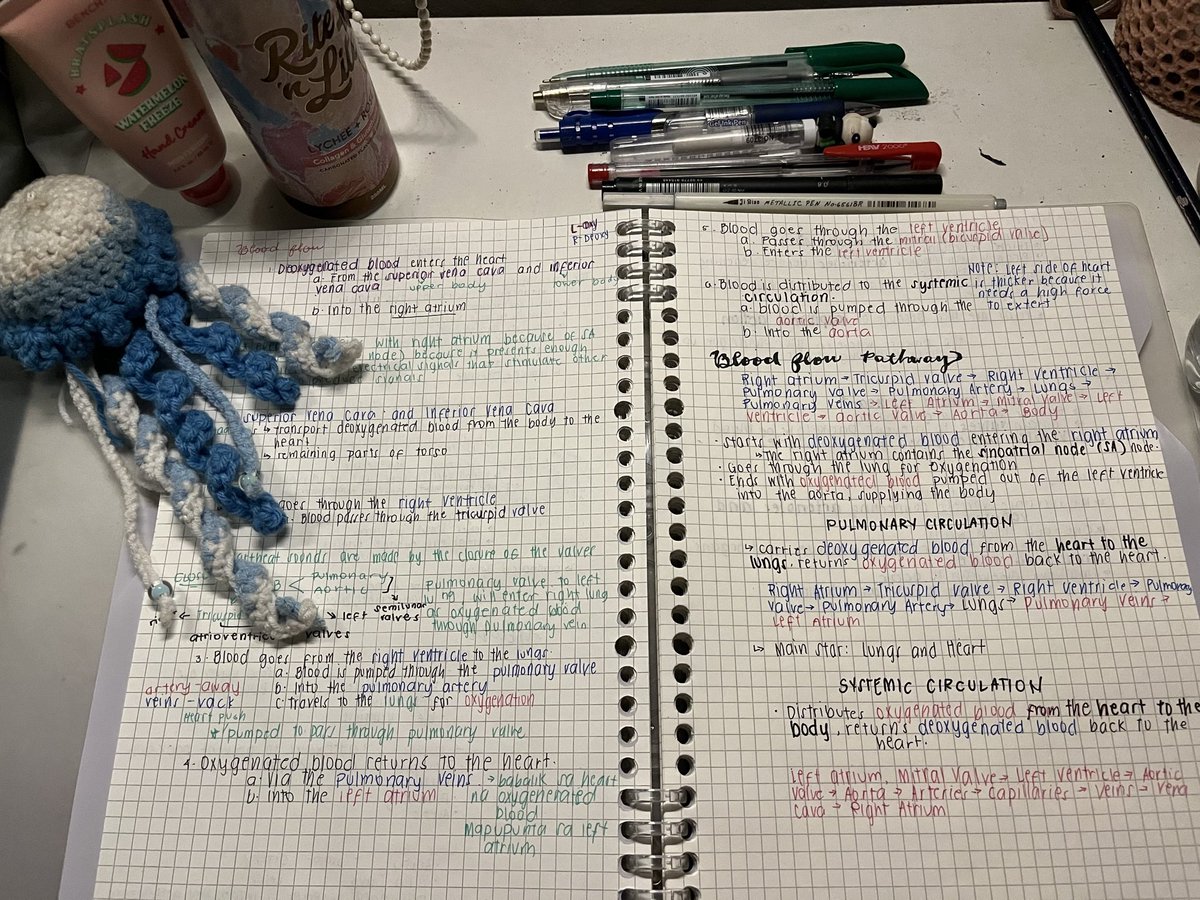 BENCH
BRAISPLASH
WATERMELON
FREEZE
Hand Cream
Rite
'n Lite
LYCHEE + RO
Collagen & G
HBW 2000
Ji Xian METALLIC PEN NO-6561BR
Blood flow
L-Oxy
R-Deoxy
1. Deoxygenated blood enters the heart
a. From the superior vena cava and inferior
vena cava upper body lower body
b. Into the right atrium
with right atrium because of SA
node) because it presents enough
electrical signals that stimulate other
signals
superior vena cava and inferior vena cava
↳ transport deoxygenated blood from the body to the
heart
↳ remaining parts of torso
goes through the right ventricle
Blood passes through the tricuspid valve
artheat sounds are made by the closure of the valves
B < Pulmonary
Aortic ]
semilunar
valves
pulmonary valve to left
lung will enter right lung
as oxygenated blood
through pulmonary vein
← Tricuspid
→ left
atrioventric valves
3. Blood goes from the right ventricle to the lungs.
a. Blood is pumped through the pulmonary valve
artery-away
b. Into the pulmonary artery
veins-vack
c. travels to the lungs for oxygenation
Heart push
* pumped to pass through pulmonary valve
4. Oxygenated blood returns to the heart.
a. via the Pulmonary veins → babalik sa heart
b. Into the left atrium na oxygenated
blood
Mapupunta sa left
atrium
5. Blood goes through the left ventricle
a. Passes through the mitral (bicuspid valve)
b. Enters the left ventricle
Note: Left side of heart
is thicker because it
needs a high force
to extert
6. Blood is distributed to the systemic
circulation.
a. blood is pumped through the
aortic valve
b. Into the aorta
Blood flow Pathway
Right atrium → Tricuspid valve → Right ventricle →
Pulmonary valve → Pulmonary Artery → Lungs →
Pulmonary veins → Left Atrium → Mitral valve → Left
ventricle → aortic valve → Aorta → Body
• starts with deoxygenated blood entering the right atrium
↳ The right atrium contains the sinoatrial node (SA) node.
• Goes through the lung for oxygenation
• Ends with oxygenated blood pumped out of the left ventricle
into the aorta, supplying the body
PULMONARY CIRCULATION
↳ carries deoxygenated blood from the heart to the
lungs. returns oxygenated blood back to the heart.
Right Atrium → Tricuspid valve → Right ventricle → Pulmonary
valve → Pulmonary Artery → Lungs → Pulmonary veins →
Left Atrium
↳ Main star: Lungs and Heart
SYSTEMIC CIRCULATION
• Distributes oxygenated blood from the heart to the
body, returns deoxygenated blood back to the
heart.
Left atrium. Mitral valve → Left ventricle → Aortic
valve → Aorta → Arteries → Capillaries → veins → Vena
cava → Right Atrium